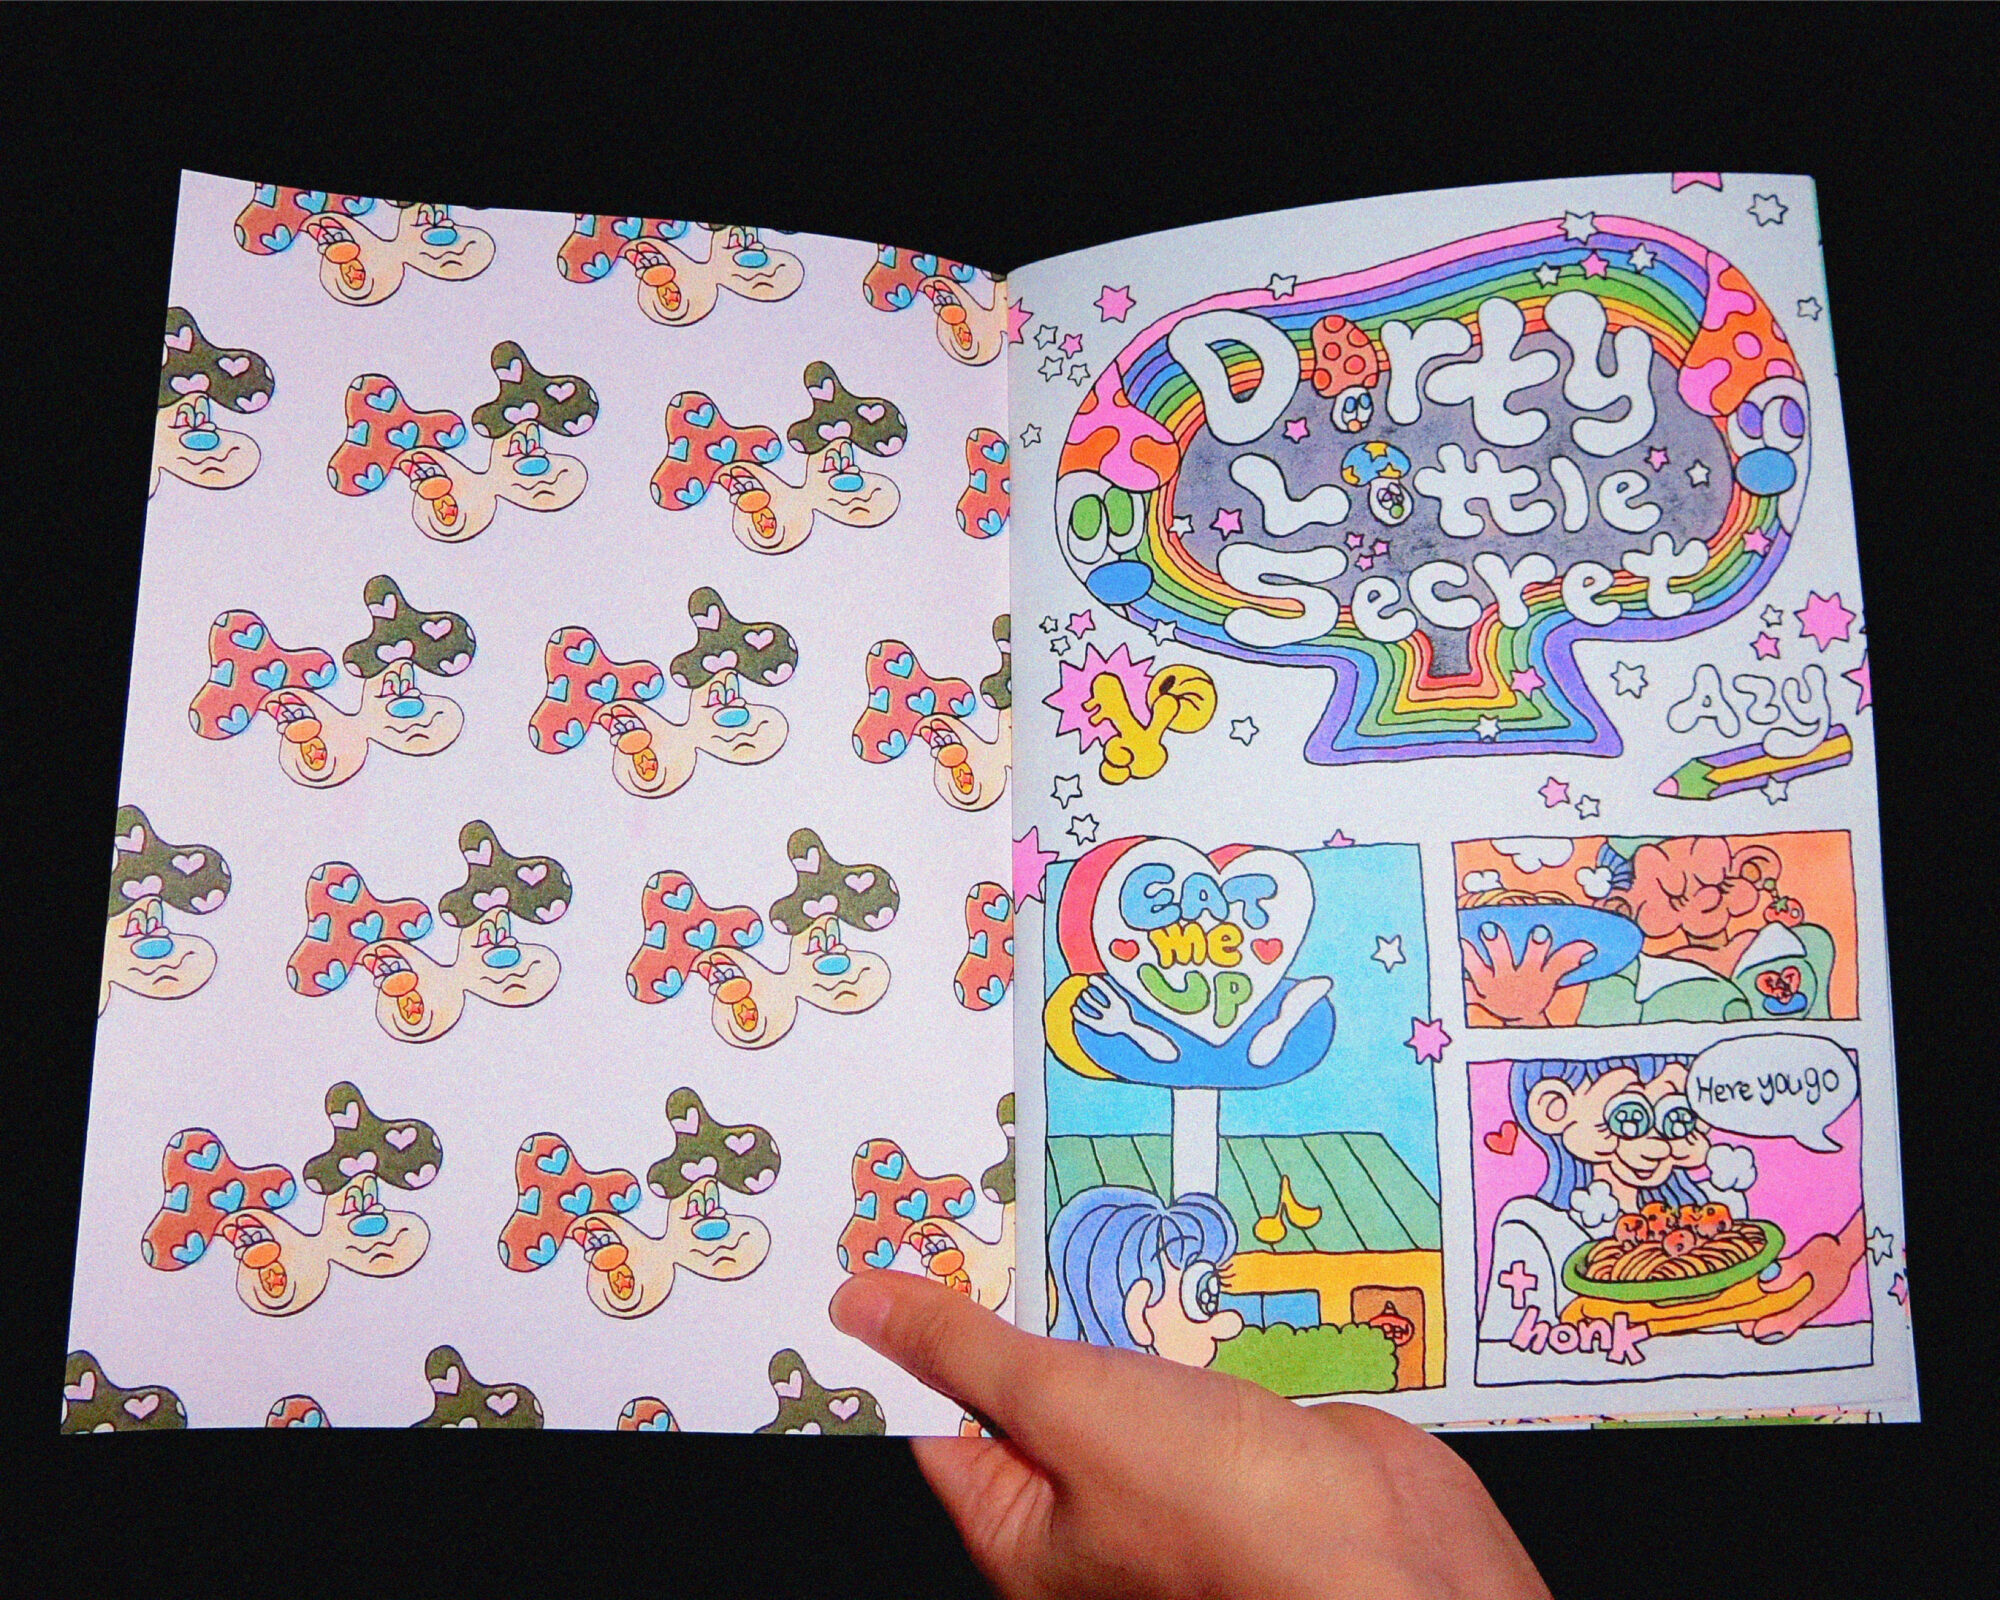 Dirty
Little
Secret
Azy
EAT
me
UP
EAT
Here you go
+
honk